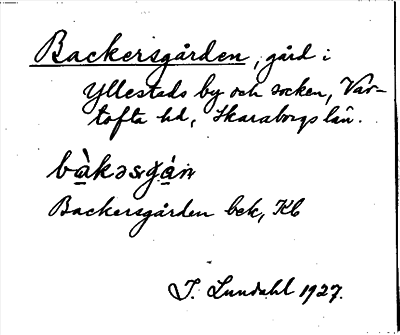 Backersgården, gård i
Yllestads by och socken, Var-
tofta hd, Skaraborgs län.
bàkəsgán
Backersgården bek, Kb
I. Lundahl 1927.